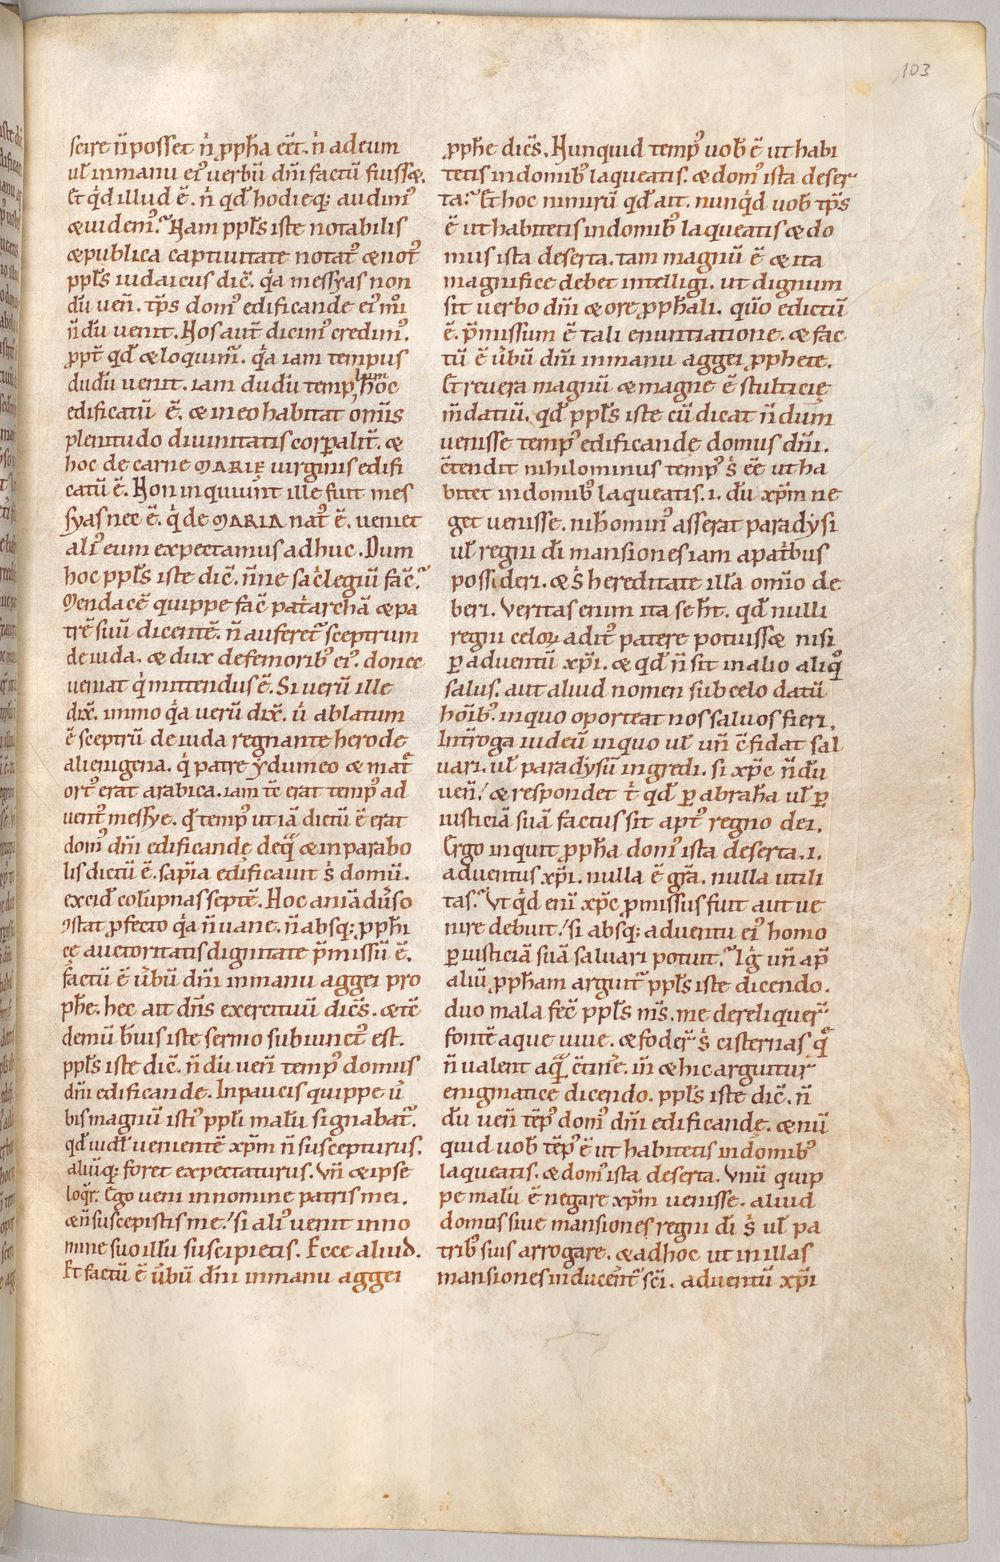 103
scire n̄ posset n̍ ꝓph̄a eēt. n̍ ad eum
ul̄ in manu ei᷒ verbū dn̄i factū fuissæ.
Et q̍d illud ē. n̍ qd̄ hodieq; audim᷒
æ uidem᷒? Nam ppl̄s iste notabilis
æ publica captiuitate notat᷒ æ not᷒
ppl̄s iudaicus dic̄. q̍a messyas non
dū ven̄. tp̄s dom᷒ edificande ei᷒ m̍i
n̄ dū venit. Nos aut̄ dicim᷒ credim᷒.
ꝓpt̄ qd̄ æ loquim᷒. q̍a iam tempus
dudū venit. iam dudū temp lum hoc
edificatū ē. æ in eo habitat om̄is
plenitudo diuinitatis corꝑalit̄. æ
hoc de carne MARIĘ uirginis edifi
catū ē. Non inquiūnt ille fuit mes
syas nec ē. q̍ de MARIA nat᷒ ē. veniet
ali᷒ eum expectamus adhuc. Dum
hoc ppl̄s iste dic̄. nn̄e sac̍legiū fac̄?
Mendacē quippe fac̄ pat̍archā æ pa
trē suū dicentē. n̄ auferet᷑ sceptrum
de iuda. æ dux de femorib᷒ ei᷒. donec
veniat q̍ mittendus ē. Si verū ille
dix̄. immo q̍a verū dix̄. u̍ ablatum
ē sceptrū de iuda regnante herode
alienigena. q̍ patre ydumeo æ mat̄
ort᷒ erat arabica. iam tē erat temp᷒ ad
uent᷒ messye. qd̄ temp᷒ ut iā dictū ē erat
dom᷒ dn̄i edificandę de qͣ æ in parabo
lis dictū ē. sap̄ia edificauit s̍ domū.
excid̄ colūpnas septē. Hoc aniāduˀso
ꝯstat ꝓfecto q̍a n̄ uane. n̄ absq; ꝓph̄i
cę auctoritatis dignitate p̄missū ē.
factū ē ūbū dn̄i in manu aggei pro
phe. hec ait dn̄s exercituū dicēs. æ tē
demū b̄uis iste sermo subiunct᷒ est.
ppl̄s iste dic̄. n̄ dū ven̄ temp᷒ domus
dn̄i edificande. In paucis quippe ū
bis magnū isti᷒ ppl̄i malū signabat᷑.
qd̄ iudˡ venientē xp̄m n̄ suscepturus.
aliūq; foret expectaturus. Vn̄ æ ipse
loqͬ. Ego veni in nomine patris mei.
æ n̄ suscepistis me! si ali᷒ venit in no
mine suo illū suscipietis. Ecce aliud.
Et factū ē ūbū dn̄i in manu aggei
ꝓphe dicēs. Nunquid temp᷒ uob̄ ē ut habi
tetis in domib᷒ laqueatis. æ dom᷒ ista deser
ta? Et hoc nimirū qd̄ ait. nunq̍d uob̄ tp̄s
ē ut habitetis in domib᷒ laqueatis æ do
mus ista deserta. tam magnū ē æ ita
magnifice debet intelligi. ut dignum
sit verbo dn̄i æ ore ꝓph̄ali. quo edictū
ē. p̄missum ē tali enuntiatione. æ fac
tū ē ūbū dn̄i in manu aggei ꝓphete.
Et reuera magnū æ magne ē stulticię
m̄datiū. qd̄ ppl̄s iste cū dicat n̄ dum
uenisse temp᷒ edificandę domus dn̄i.
ꝯtendit nihilominus temp᷒ s̍ eē ut ha
bitet in domib᷒ laqueatis. i. dū xp̄m ne
get venisse. nih̄omin᷒ asserat paradysi
ul̄ regni dī mansiones iam a pat̍bus
possideri. æ s̍ hereditate illā om̄io de
beri. Veritas enim ita se h̄t. qd̄ nulli
regni celoꝝ adit᷒ patere potuissæ nisi
ꝑ aduentū xp̄i. æ qd̄ n̄ sit in alio aliqͦ
salus. aut aliud nomen sub celo datū
hoīb᷒. in quo oporteat nos saluos fieri.
Int̄roga iudeū in quo ul̄ un̄ ꝯfidat sal
uari. ul̄ paradysū ingredi. si xp̄c n̄ dū
ven̄! æ respondet t̍ qd̄ ꝑ abrahā ul̄ ꝑ
iusticiā suā factus sit apt᷒ regno dei.
Ergo inquit ꝓph̄a dom᷒ ista deserta. i.
aduentus xp̄i. nulla ē gr̄a. nulla utili
tas? Vt q̍d eni xp̄c ꝓmissus fuit aut ve
nire debuit! si absq; aduentu ei᷒ homo
ꝑ iusticiā suā saluari potuit? Ig̍ un̄ ap̄
aliū ꝓph̄am arguit᷑ ppl̄s iste dicendo.
duo mala fec̄ ppl̄s m̄s. me dereliquer̄
fontē aque uiue. æ foder̄ s̍ cisternas qͤ
n̄ ualent aqͣ ꝯtinˀe. in̄ æ hic arguitur
enigmatice dicendo. ppl̄s iste dic̄. n̄
dū ven̄ tēp᷒ dom᷒ dn̄i edificandę. æ nū
quid uob̄ tēp᷒ ē ut habitetis in domib᷒
laqueatis. æ dom᷒ ista deserta. Vnū quip
pe malū ē negare xp̄m venisse. aliud
domus siue mansiones regni dī s̍ ul̄ pa
trib᷒ suis arrogare. æ adhoc ut in illas
mansiones inducent᷑ sc̄i. aduentū xp̄i